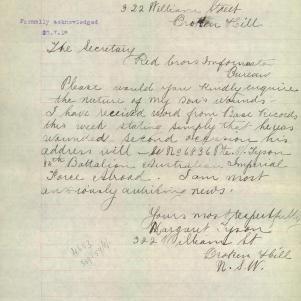 322 William Street
Broken Hill
Formally acknowledged
The Secretary
Red Cross Information
Bureau
Please would you kindly enquire
the nature of my son's wounds.
I have received word from Base Records
this week stating simply that he was
wounded, second occasion his
address will No 6836 Pte Tyson
10th Battalion Australian Imperial
Force Abroad. I am most
anxiously awaiting news.
Yours most respectfully
Margaret Tyson
322 Williams St
Broken Hill
N.S.W.